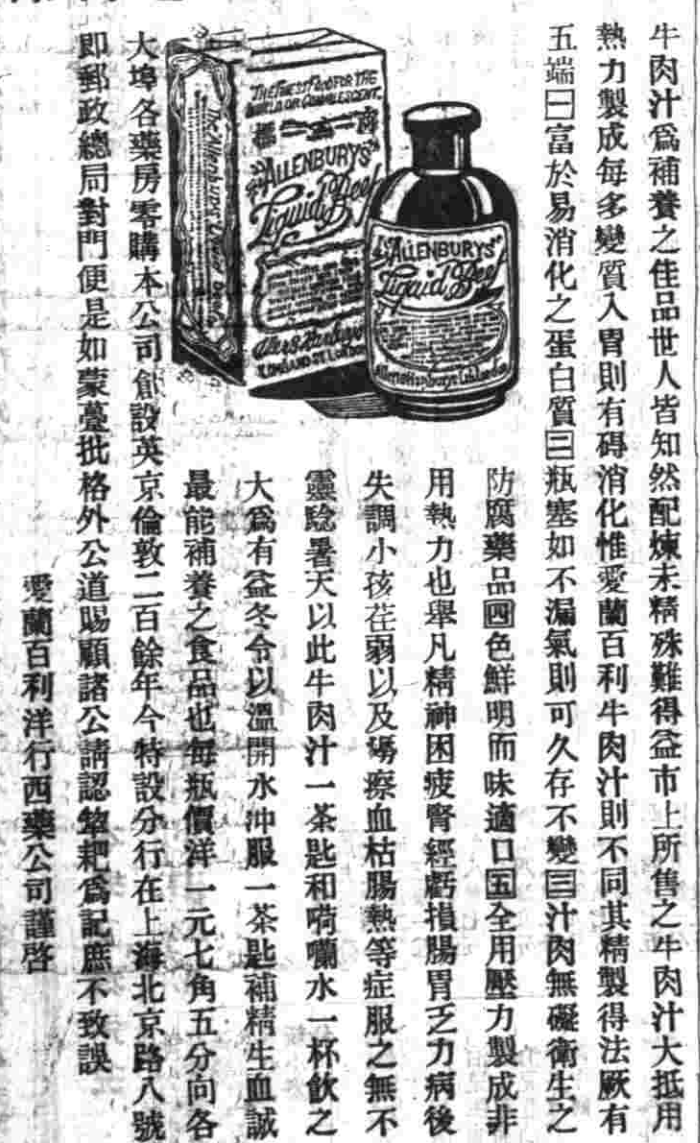 牛肉汁爲補養之佳品世人皆知然配煉未精殊難得益市上所售之牛肉汁大抵用
熱力製成每多變質入胃則有碍消化惟愛蘭百利牛肉汁則不同其精製得法厥有
五端㊀富於易消化之蛋白質㊁瓶塞如不漏氣則可久存不變㊂汁肉無礙衛生之
防腐藥品㊃色鮮明而味適口㊄全用壓力製成非
用熱力也舉凡精神困疲腎經虧損腸胃乏力病後
失調小孩荏弱以及癆瘵血枯腸熱等症服之無不
靈騐暑天以此牛肉汁一茶匙和嗬囒水一杯飲之
大爲有益冬令以溫開水沖服一茶匙補精生血誠
最能補養之食品也每瓶價洋一元七角五分向各
大埠各藥房零購本公司創設英京倫敦二百餘年今特設分行在上海北京路八號
即郵政總局對門便是如蒙躉批格外公道賜顧諸公請認犂耙爲記庶不致誤
愛蘭百利洋行西藥公司謹啓
THE FINEST FOOD FOR THE
INVALID OR CONVALESCENT.
THE "ALLENBURYS"
Liquid Beef
Allen & Hanburys
LOMBARD ST. LONDON
The Allenburys Liquid Beef
THE "ALLENBURYS"
Liquid Beef
Allen & Hanburys Ltd. London